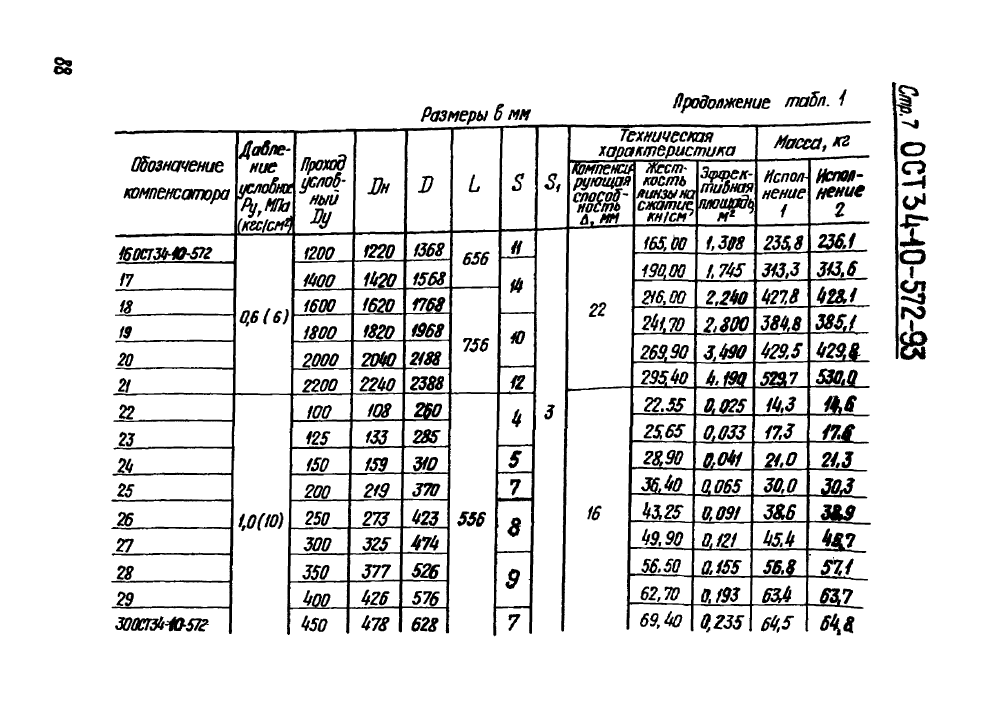 88
Стр. 7 ОСТ34-10-572-93
Продолжение табл. 1
Размеры в мм
Обозначение компенсатора | Давление условное Ру, МПа (кгс/см²) | Проход условный Dу | Dн | D | L | S | S₁ | Техническая характеристика | Масса, кг
Компенсирующая способность Δ, мм | Жесткость линзы на сжатие, кН/см | Эффективная площадь, м² | Исполнение 1 | Исполнение 2
16 ОСТ34-10-572 | 0,6 (6) | 1200 | 1220 | 1368 | 656 | 11 | 3 | 22 | 165,00 | 1,308 | 235,8 | 236,1
17 | 1400 | 1420 | 1568 | 14 | 190,00 | 1,745 | 313,3 | 313,6
18 | 1600 | 1620 | 1768 | 756 | 216,00 | 2,240 | 427,8 | 428,1
19 | 1800 | 1820 | 1968 | 10 | 241,70 | 2,800 | 384,8 | 385,1
20 | 2000 | 2040 | 2188 | 269,90 | 3,490 | 429,5 | 429,8
21 | 2200 | 2240 | 2388 | 12 | 295,40 | 4,190 | 529,7 | 530,0
22 | 1,0(10) | 100 | 108 | 260 | 556 | 4 | 16 | 22,55 | 0,025 | 14,3 | 14,6
23 | 125 | 133 | 285 | 25,65 | 0,033 | 17,3 | 17,6
24 | 150 | 159 | 310 | 5 | 28,90 | 0,041 | 21,0 | 21,3
25 | 200 | 219 | 370 | 7 | 36,40 | 0,065 | 30,0 | 30,3
26 | 250 | 273 | 423 | 8 | 43,25 | 0,091 | 38,6 | 38,9
27 | 300 | 325 | 474 | 49,90 | 0,121 | 45,4 | 45,7
28 | 350 | 377 | 526 | 9 | 56,50 | 0,155 | 56,8 | 57,1
29 | 400 | 426 | 576 | 62,70 | 0,193 | 63,4 | 63,7
30 ОСТ34-10-572 | 450 | 478 | 628 | 7 | 69,40 | 0,235 | 64,5 | 64,8